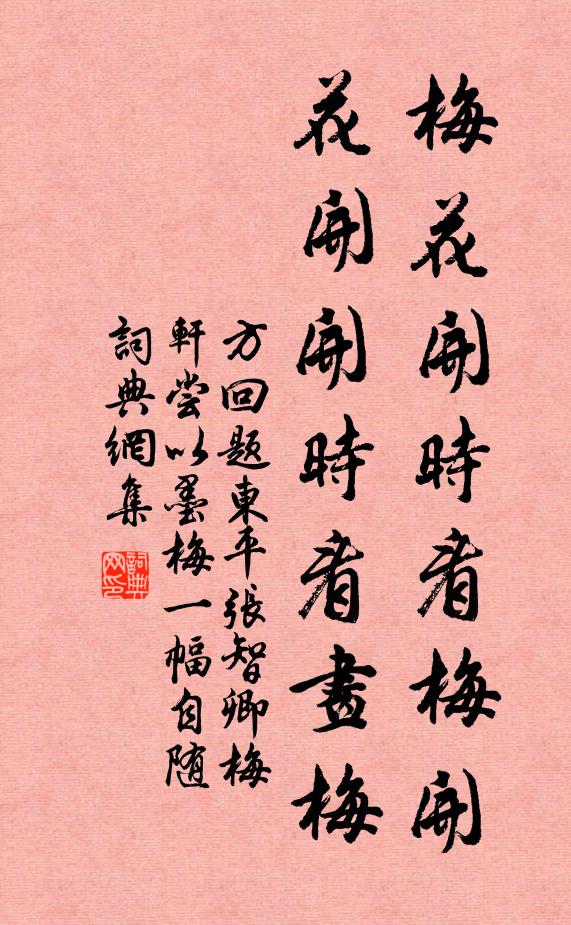 梅花開時看梅開
花開開時看畫梅
方回题東平張智卿梅
軒嘗以墨梅一幅自随
詞典網集
詞典网印